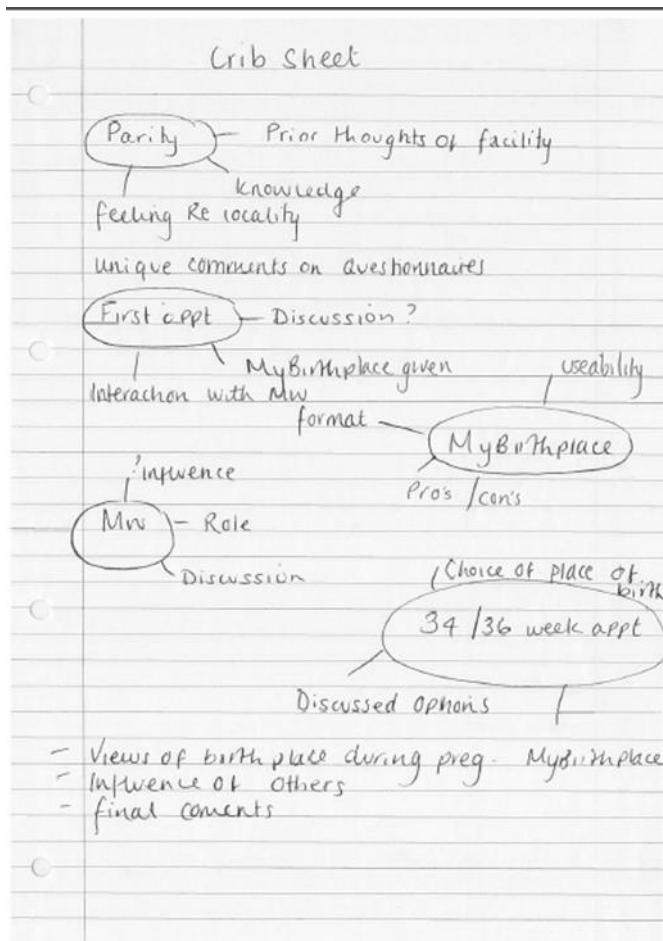 Crib Sheet
Parity – Prior thoughts of facility
Knowledge
feeling Re locality
unique comments on questionnaires
First appt – Discussion?
MyBirthplace given
Interaction with MW
useability
format
MyBirthplace
Pro's / con's
? influence
MW – Role
Discussion
Choice of place of birth
34 / 36 week appt
Discussed options
MyBirthplace
– Views of birth place during preg.
– Influence of others
– final coments